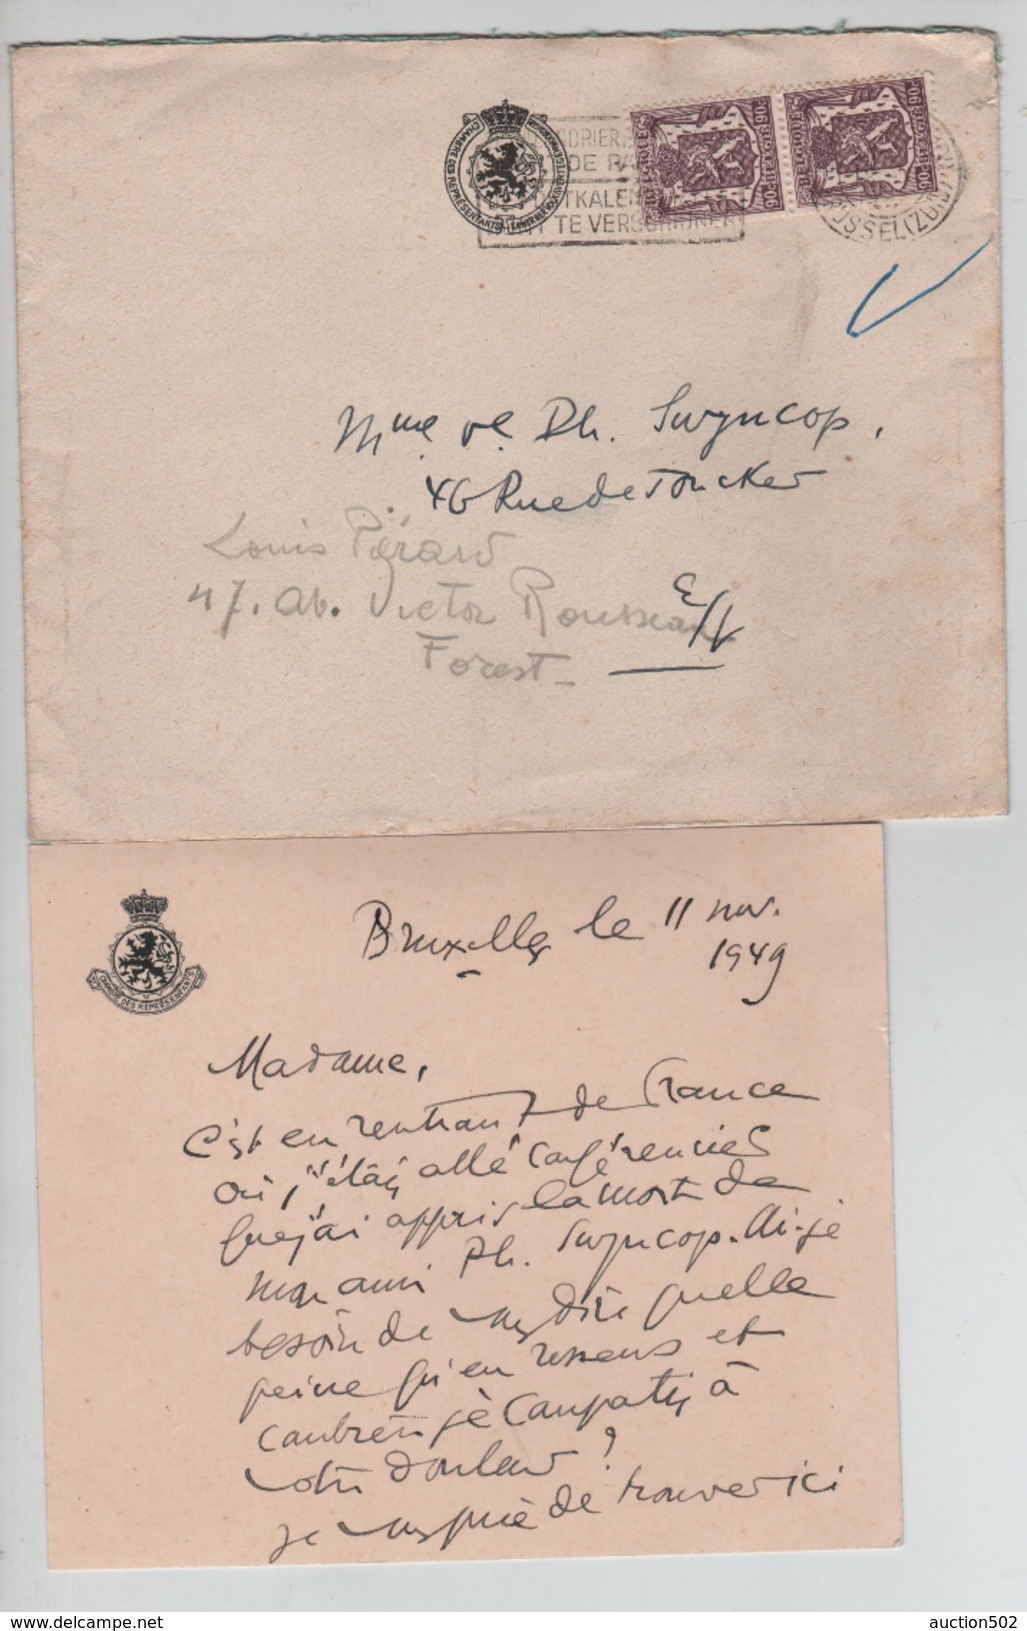 CHAMBRE DES REPRÉSENTANTS
BELGIQUE-BELGIË 90c
BELGIQUE-BELGIË 90c
DE PA
TKALEN
TE VERSCHIJNEN
SSEL(ZUID
Mme Ph. Swyncop,
46 Rue de Joncker
Louis Pérard
47. av. Victor Rousseau
E/V
Forest
CHAMBRE DES REPRÉSENTANTS
Bruxelles le 11 nov.
1949
Madame,
C'est en rentrant de France
où j'étais allé conférencier
que j'ai appris la mort de
mon ami Ph. Swyncop. Ai-je
besoin de vous dire quelle
peine j'en ressens et
combien je compatis à
votre douleur ?
je vous prie de trouver ici
auction502